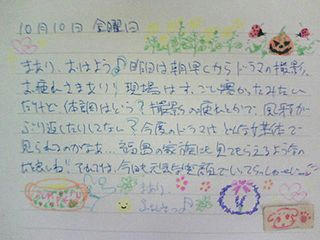 10月10日 金曜日
まあり、おはよう♪昨日は朝早くからドラマの撮影、
お疲れさまあり!! 現場はすっごい寒かったみたい
だけど体調はどう?撮影の疲れとかで、風邪が
ぶり返したりしてない?今度のドラマはどんな媒体で
見られるのかなぁ…福島の家族にも見てもらえるよう
だね! それでは、今日も元気全開でいってらっしゃーい
まあり